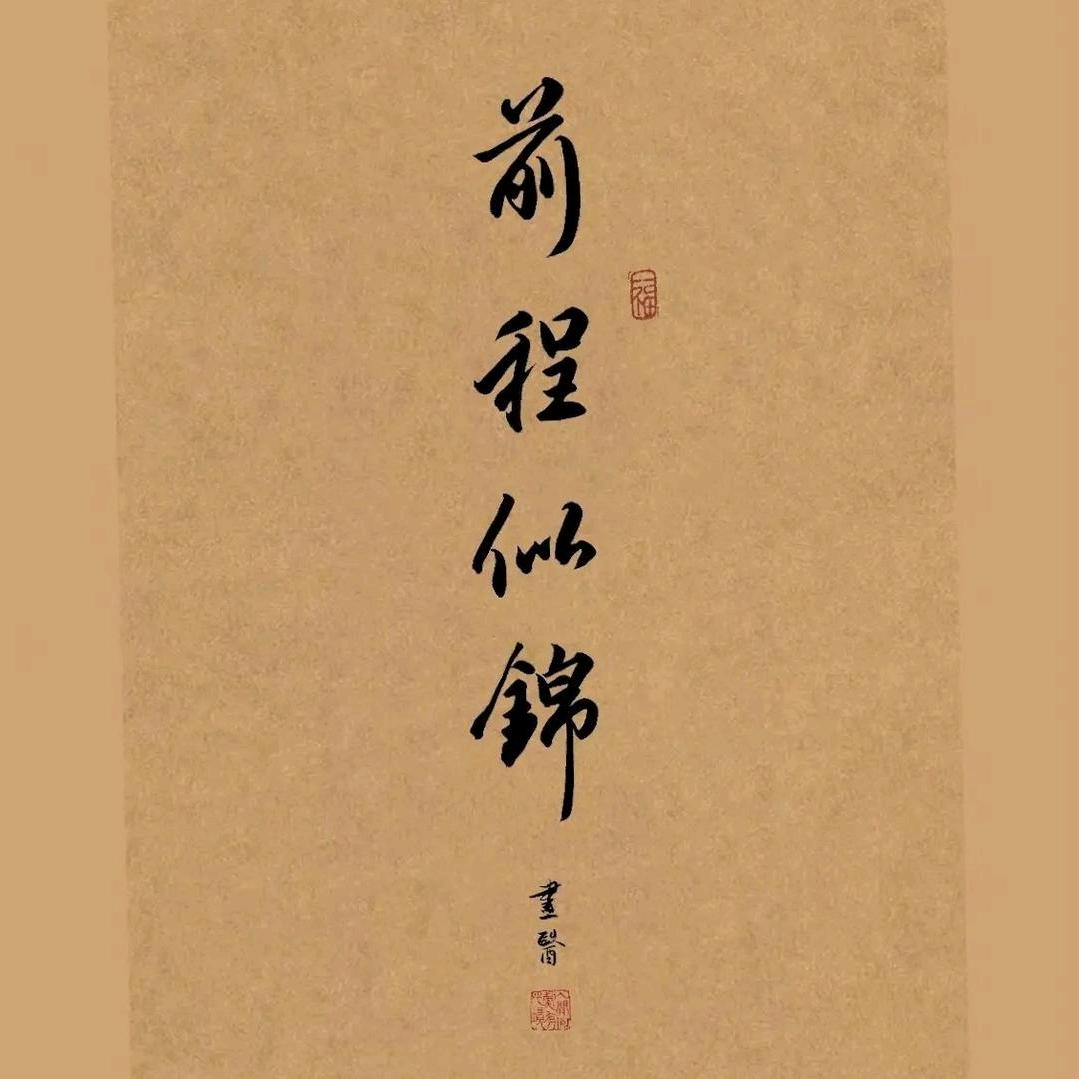 前程似錦
畫醫